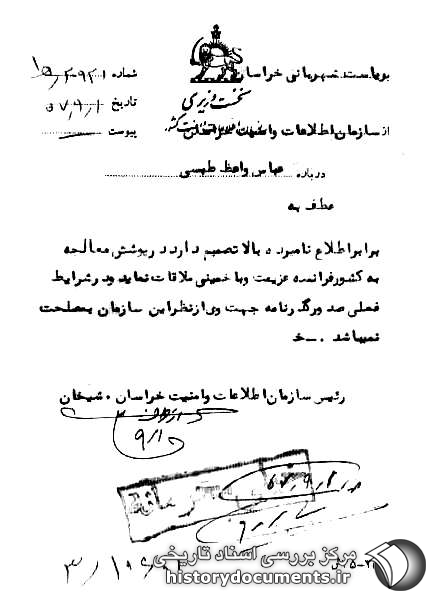 بریاست شهربانی خراسان
نخست وزیری
از سازمان اطلاعات وامنیت خراسان
شماره
تاریخ ۵۷/۹/۱
پیوست
درباره عباس واعظ طبسی
عطف به
برابر اطلاع نامبرده بالا تصمیم دارد در پوشش معالجه
به کشور فرانسه عزیمت و با خمینی ملاقات نماید و در شرایط
فعلی صدور گذرنامه جهت وی از نظر این سازمان بمصلحت
نمیباشد . خ
رئیس سازمان اطلاعات وامنیت خراسان . شیخان
مرکز بررسی اسناد تاریخی
historydocuments.ir